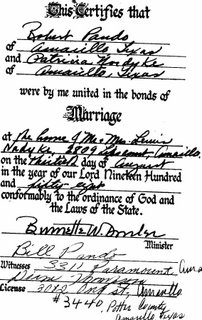 This Certifies that
Robert Pando
of Amarillo Texas
and Patricia Nordyke
of Amarillo, Texas
were by me united in the bonds of
Marriage
at The home of Mr & Mrs Louis
2809 Amarillo.
on the day of August
in the year of our Lord Nineteen Hundred
and fifty eight
conformably to the ordinance of God and
the Laws of the State.
Burnette W.
Minister
Bill Pando
Witnesses 3311 Paramount Ama
License 3010 St, Amarillo
#3440, Potter County
Amarillo Texas